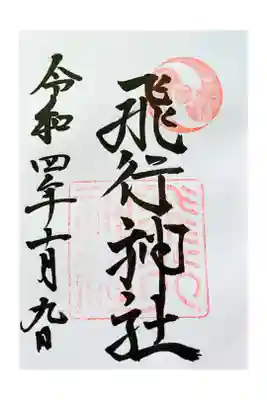 飛行神社
令和四年十月九日